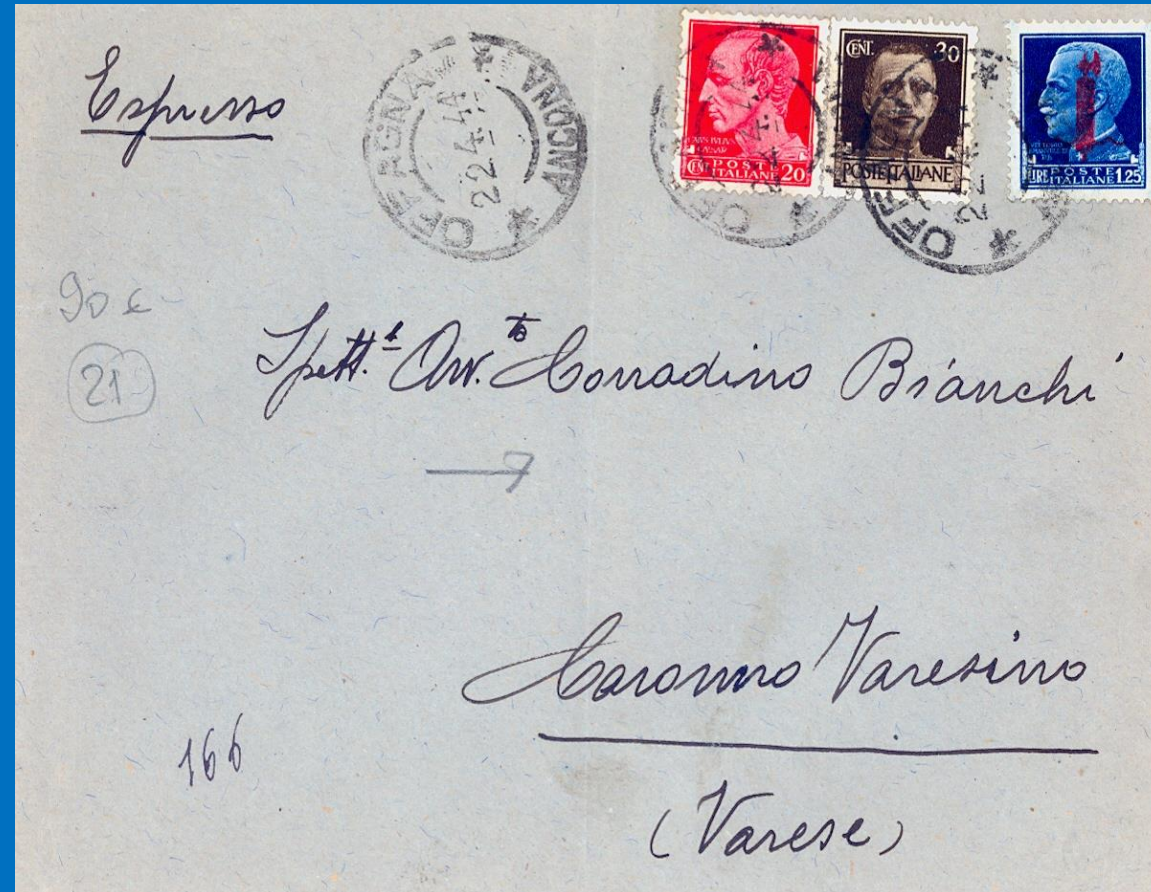 Espresso
OFFAGNA * ANCONA *
22.4.44
CAIVS IVLIVS
CAESAR
CENT POSTE
ITALIANE 20
CENT. 30
POSTE ITALIANE
LIRE POSTE
ITALIANE 1.25
90 €
21
Spett.e Avv.to Corradino Bianchi
Caronno Varesino
166
(Varese)